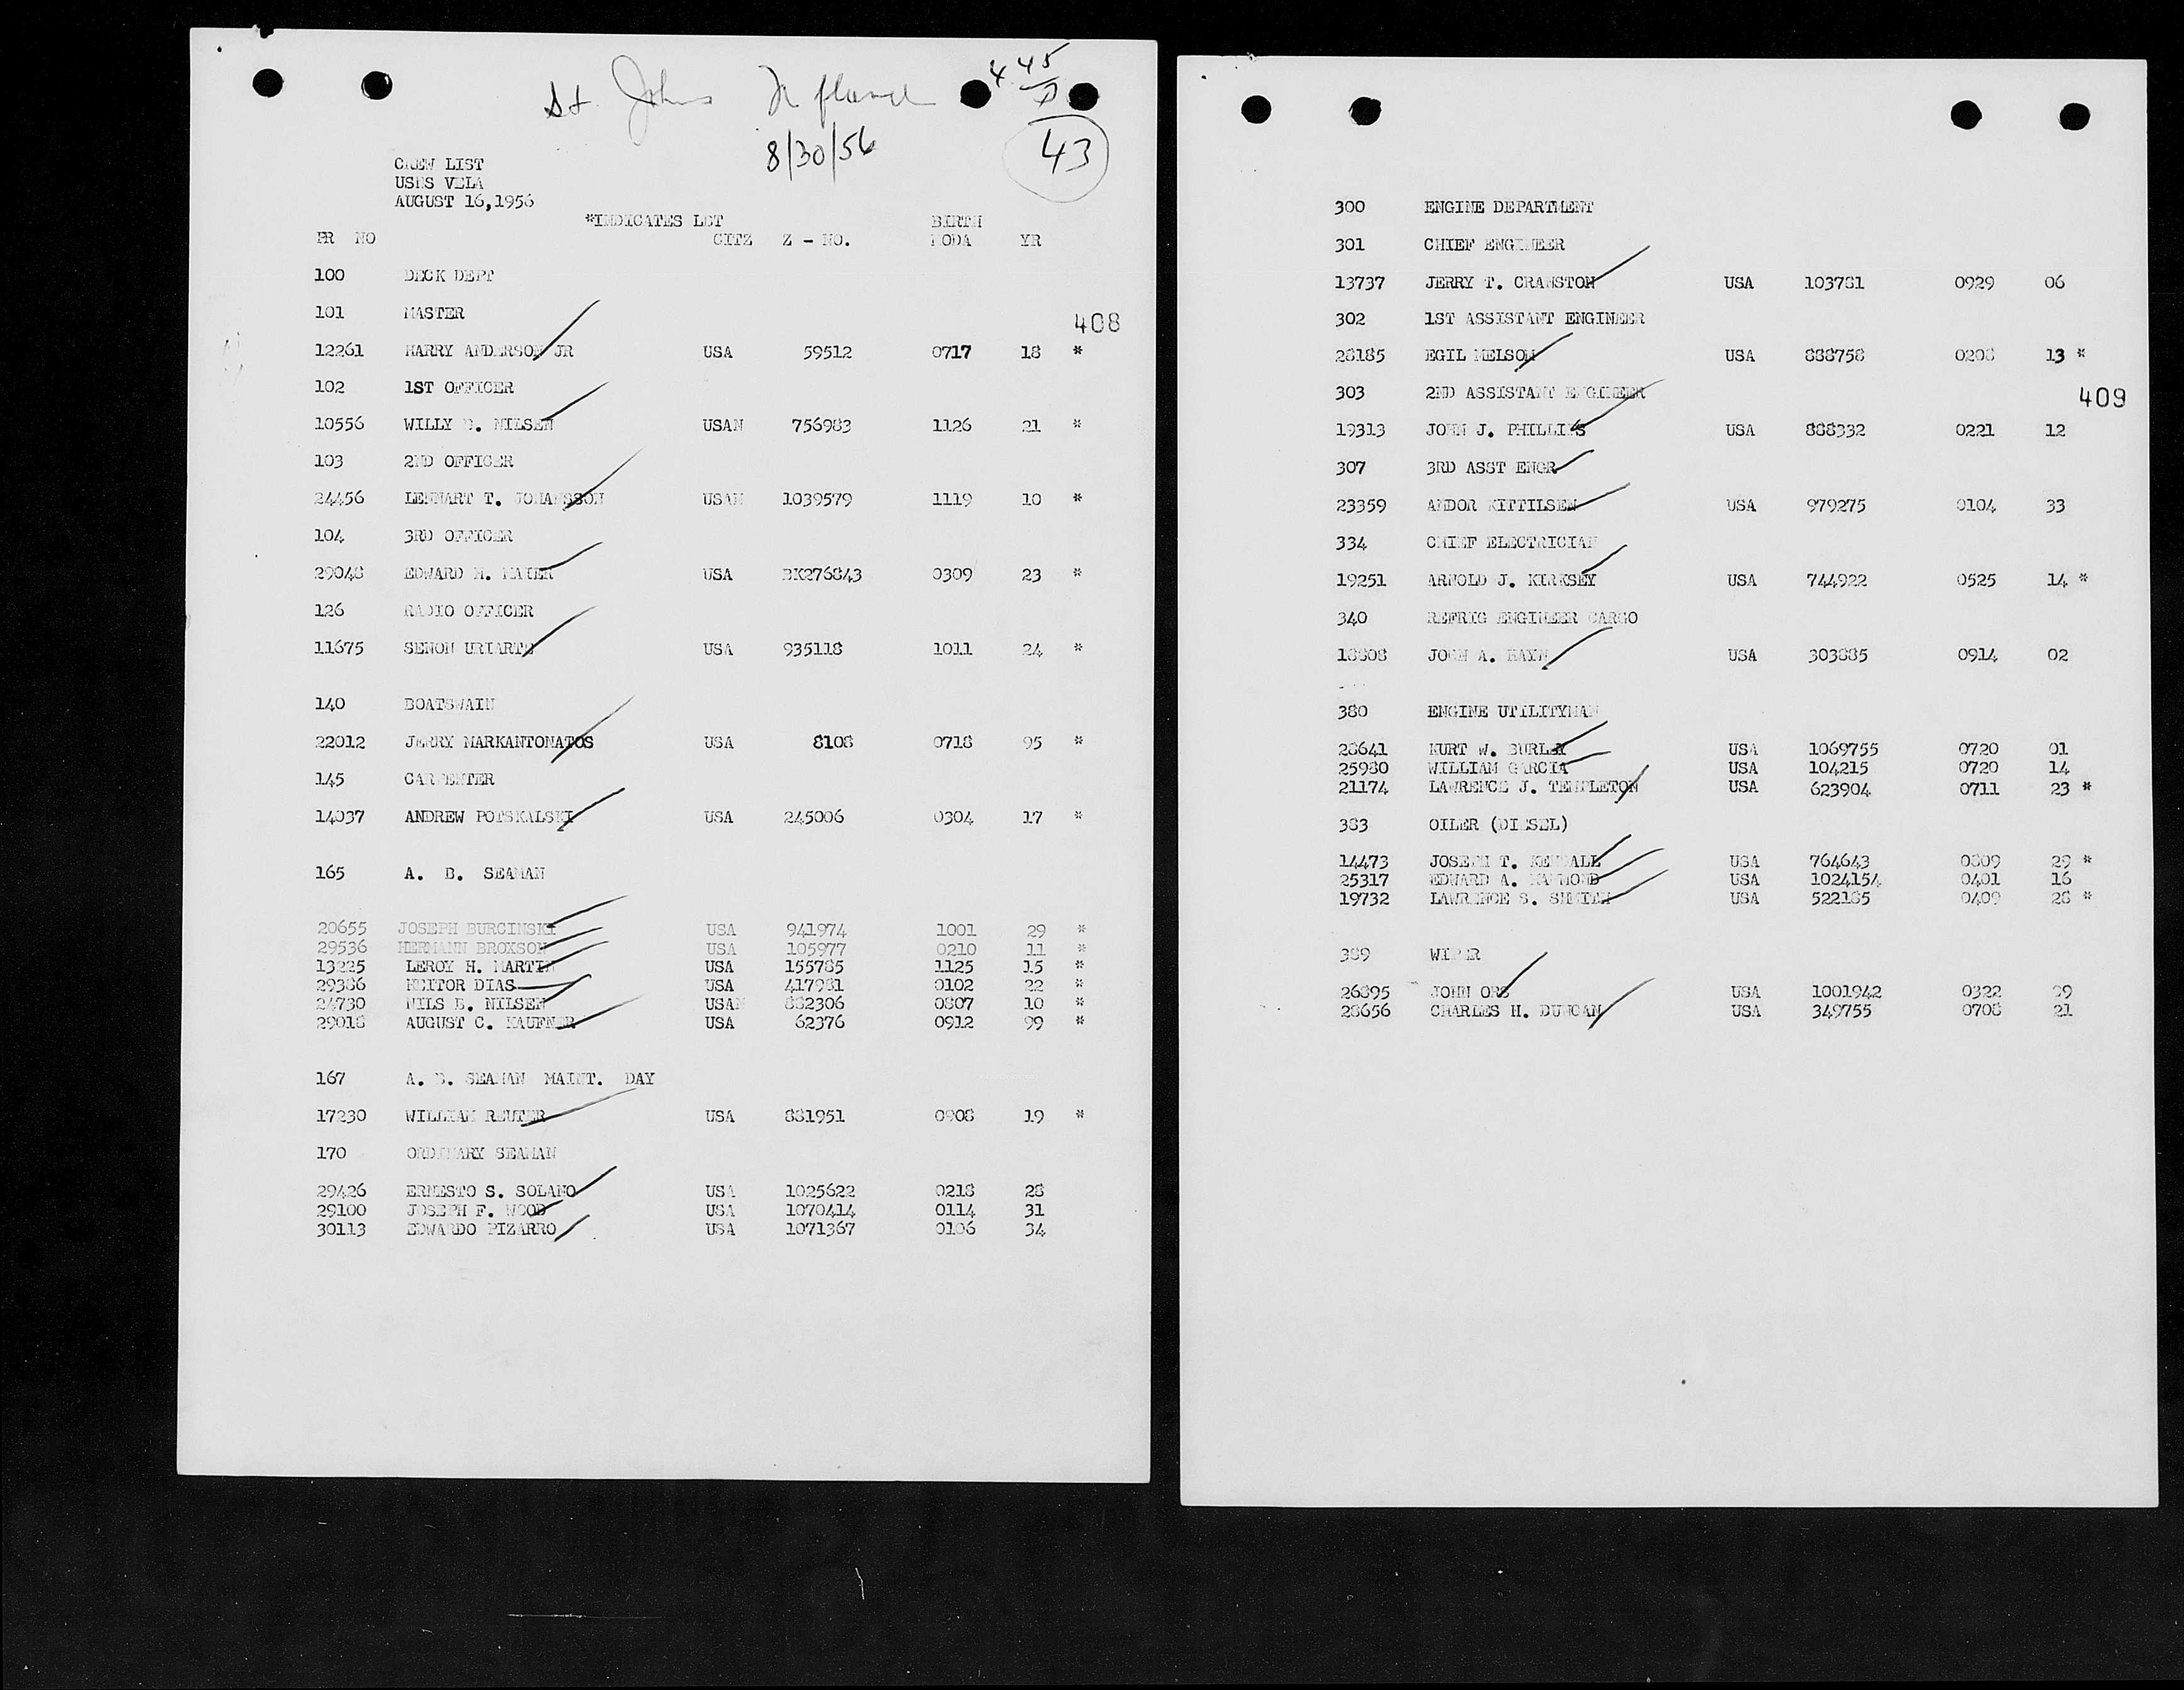 St. Johns N fland
4 45 P
8/30/56
43
CREW LIST
USNS VELA
AUGUST 16,1956
*INDICATES LBT BIRTH
PR NO CITZ Z - NO. MODA YR
100 DECK DEPT
101 MASTER
408
12261 HARRY ANDERSON JR USA 59512 0717 18 *
102 1ST OFFICER
10556 WILLY B. NILSEN USAN 756983 1126 21 *
103 2ND OFFICER
24456 LENNART T. JOHANSSON USAN 1039579 1119 10 *
104 3RD OFFICER
29048 EDWARD M. MAIER USA BK276843 0309 23 *
126 RADIO OFFICER
11675 SENON URIARTE USA 935118 1011 24 *
140 BOATSWAIN
22012 JERRY MARKANTONATOS USA 8108 0718 95 *
145 CARPENTER
14037 ANDREW POTSKALSKI USA 245006 0304 17 *
165 A. B. SEAMAN
20655 JOSEPH BURCINSKI USA 941974 1001 29 *
29536 HERMANN BROXSON USA 105977 0210 11 *
13225 LEROY H. MARTIN USA 155785 1125 15 *
29386 HEITOR DIAS USA 417981 0102 22 *
24730 NILS B. NILSEN USAN 882306 0807 10 *
29018 AUGUST C. KAUFNER USA 62376 0912 99 *
167 A. B. SEAMAN MAINT. DAY
17230 WILLIAM REUTER USA 881951 0908 19 *
170 ORDINARY SEAMAN
29426 ERNESTO S. SOLANO USA 1025622 0218 28
29100 JOSEPH F. WOOD USA 1070414 0114 31
30113 EDWARDO PIZARRO USA 1071367 0106 34
300 ENGINE DEPARTMENT
301 CHIEF ENGINEER
13737 JERRY T. CRANSTON USA 103781 0929 06
302 1ST ASSISTANT ENGINEER
28185 EGIL NELSON USA 888758 0208 13 *
303 2ND ASSISTANT ENGINEER
409
19313 JOHN J. PHILLIPS USA 888332 0221 12
307 3RD ASST ENGR
23359 ANDOR KITTILSEN USA 979275 0104 33
334 CHIEF ELECTRICIAN
19251 ARNOLD J. KIRKSEY USA 744922 0525 14 *
340 REFRIG ENGINEER CARGO
18808 JOHN A. HAYN USA 303885 0914 02
380 ENGINE UTILITYMAN
28641 KURT W. BURLEY USA 1069755 0720 01
25980 WILLIAM GARCIA USA 104215 0720 14
21174 LAWRENCE J. TEMPLETON USA 623904 0711 23 *
383 OILER (DIESEL)
14473 JOSEPH T. KENDALL USA 764643 0809 29 *
25317 EDWARD A. HAMMOND USA 1024154 0401 16
19732 LAWRENCE S. SMEITH USA 522185 0409 28 *
389 WIPER
26895 JOHN ORS USA 1001942 0322 99
28656 CHARLES H. DUNCAN USA 349755 0708 21